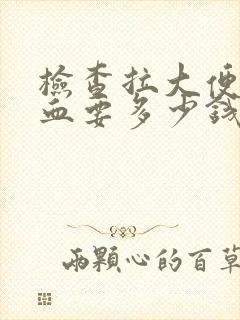 檢查拉大便
血要多少錢
兩顆心的百草